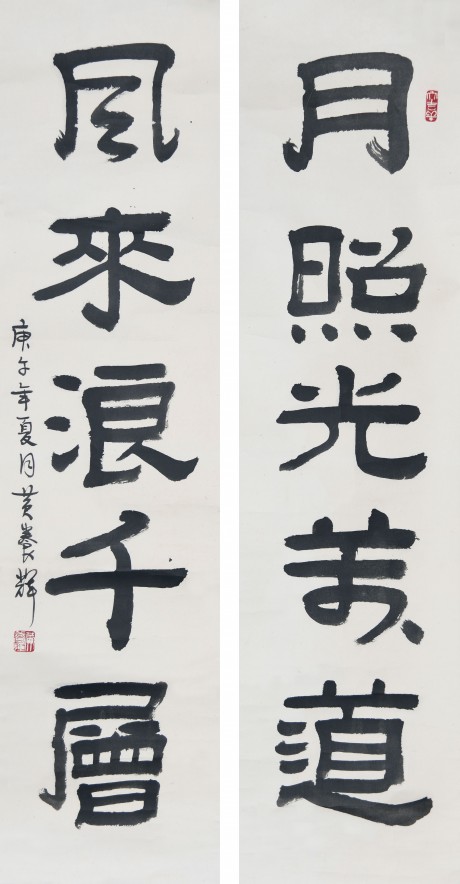 月照光萬道
風來浪千層
庚午年夏月黄養輝